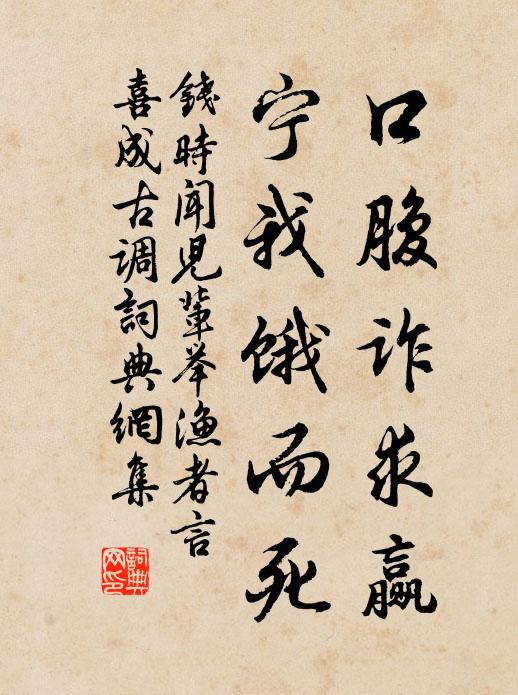 口腹诈求赢
宁我饿而死
錢時闻児輩举漁者言
喜成古调詞典網集
詞典网印